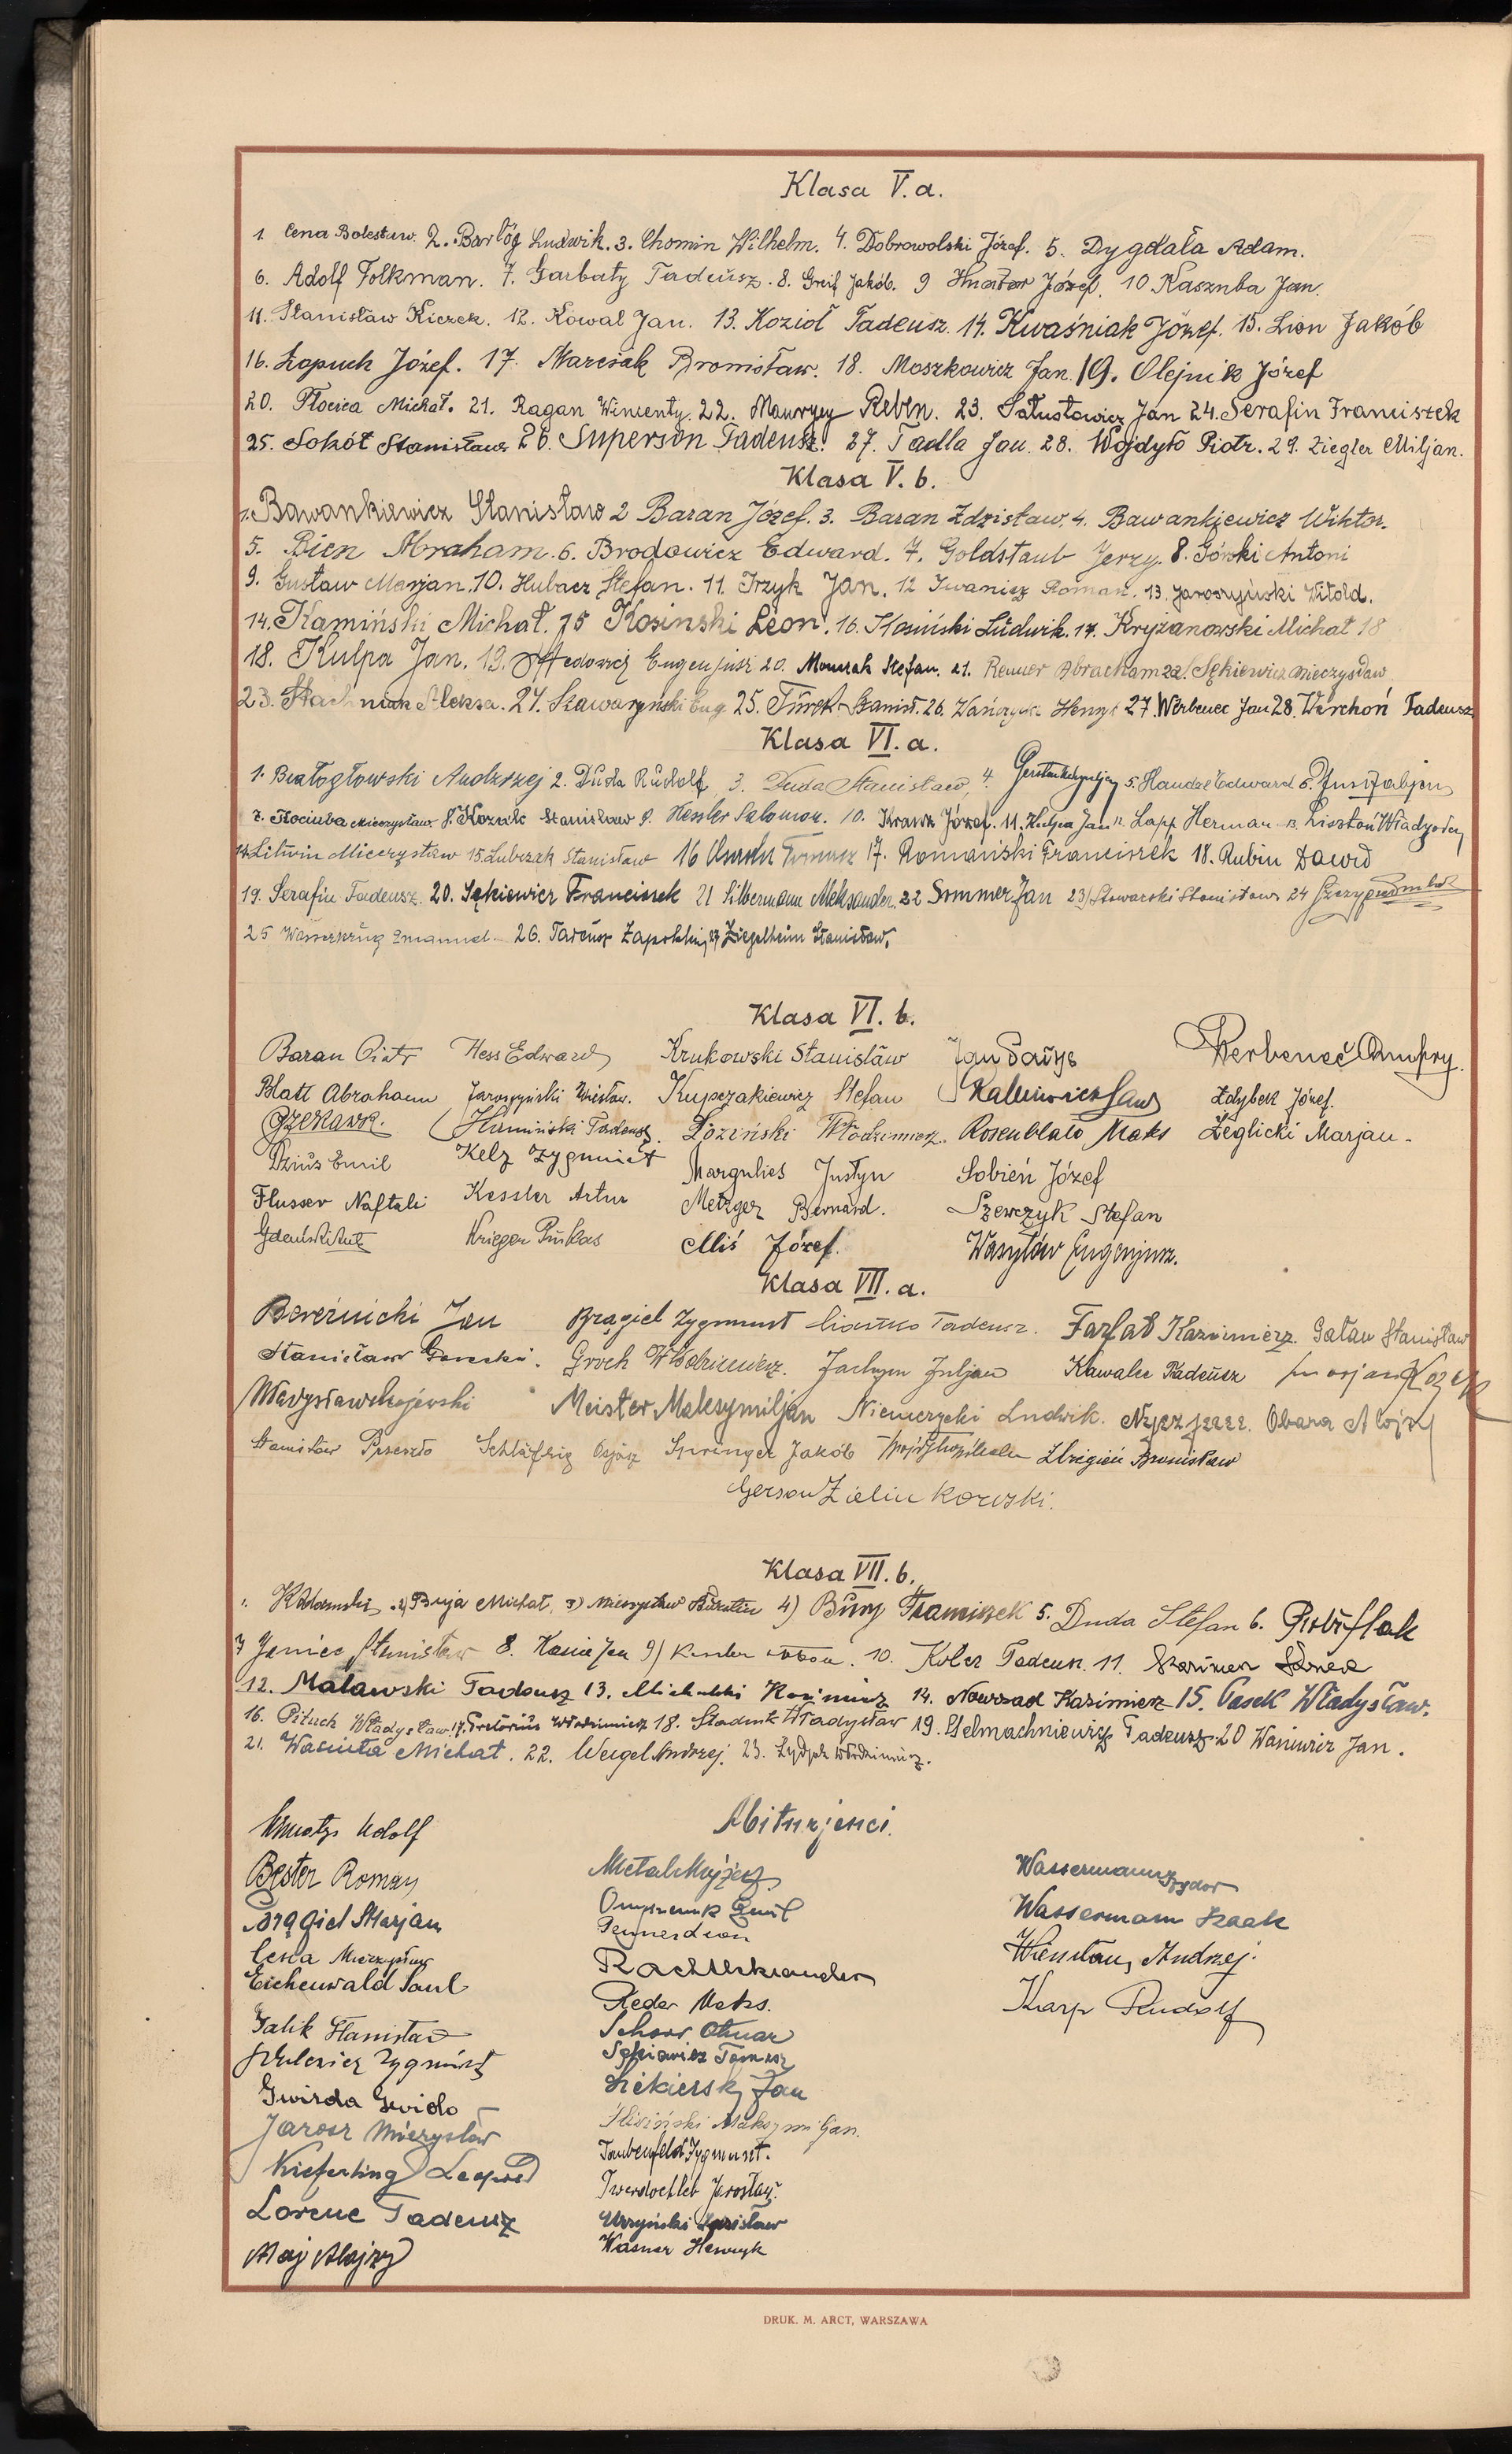 Klasa V. a.
1. Cena Bolesław. 2. Barłóg Ludwik. 3. Chomin Wilhelm. 4. Dobrowolski Józef. 5. Dygdała Adam.
6. Adolf Folkman. 7. Garbaty Tadeusz. 8. Greif Jakób. 9 Józef. 10 Kasznba Jan.
11. Stanisław Kiczek. 12. Kowal Jan. 13. Kozioł Tadeusz. 14. Kwaśniak Józef. 15. Lion Jakób
16. Łapuch Józef. 17. Marciak Bronisław. 18. Moszkowicz Jan. 19. Olejnik Józef
20. Płocica Michał. 21. Ragan Wincenty. 22. Maurycy Reben. 23. Sałustowicz Jan 24. Serafin Franciszek
25. Sokół Stanisław 26. Superson Tadeusz. 27. Tadla Jan. 28. Wojdyło Piotr. 29. Ziegler Miljan.
Klasa V. b.
1. Bawankiewicz Stanisław 2 Baran Józef. 3. Baran Zdzisław. 4. Bawankiewicz Wiktor.
5. Bien Abraham. 6. Brodowicz Edward. 7. Goldstaub Jerzy. 8. Górski Antoni
9. Gustaw Marjan. 10. Hubacz Stefan. 11. Irzyk Jan. 12 Iwanicz Roman. 13. Jaroszyński Witold.
14. Kamiński Michał. 15 Kosinski Leon. 16. Kosiński Ludwik. 17. Kryżanowski Michał 18
18. Kulpa Jan. 19. Eugenjusz 20. Stefan. 21. Renner Abracham 22. Sękiewicz Mieczysław
23. Stachniak Aleksa. 24. Szawarzyński Eug. 25. Turek Stanisł. 26. Wańczyk Henryk 27. Werbenec Jan 28. Warchoń Tadeusz
Klasa VI. a.
1. Białogłowski Andrzej 2. Duda Rudolf 3. Duda Stanisław, 4. 5. Handzel Edward 6.
7. Kociuba Mieczysław. 8. Kozak Stanisław 9. Kessler Salomon. 10. Krawiec Józef. 11. Kulpa Jan 12. Lapp Herman 13. Lisztoń Władysław
14. Litwin Mieczysław 15. Lubczak Stanisław 16 Tomasz 17. Romański Franciszek 18. Rubin Dawid
19. Serafin Tadeusz. 20. Sękiewicz Franciszek 21 Silbermann Aleksander. 22 Sommer Jan 23) Stowarski Stanisław 24
25 Wasserkrug Emanuel. 26. Tadeusz Zapolski, 27 Ziegelheim Stanisław.
Klasa VI. b.
Baran Piotr Hess Edward Krukowski Stanisław Jan Werbeneć Onufry.
Blatt Abraham Jaroszyński Wiesław. Kupczakiewicz Stefan Żdybek Józef.
Kamiński Tadeusz. Łoziński Włodzimierz. Rosenblatt Maks Żeglicki Marjan.
Dziuś Emil Kelz Zygmunt Margulies Justyn Sobień Józef
Flusser Naftali Kessler Artur Metzger Bernard. Szewczyk Stefan
Krieger Pinkas Miś Józef. Wasylów Eugenjusz.
Klasa VII. a.
Bereźnicki Jan Brągiel Zygmunt Ciastko Tadeusz. Farfał Kazimierz. Gałan Stanisław
Stanisław Górecki. Groch Włodzimierz. Jachym Juljan Kawalec Tadeusz Marjan
Władysław Meister Maksymiljan Niemczycki Ludwik. Obara Alojzy
Stanisław Przeszło Schläfrig Ozjasz Springer Jakób Zbigień Bronisław
Gerson Zielin Korczski.
Klasa VII. b.
1. 2) Buja Michał, 3) Mieczysław Burstin 4) Bury Franciszek 5. Duda Stefan 6.
7 Janiec Stanisław 8. Kania Jan 9) 10. Koler Tadeusz. 11.
12. Malawski Tadeusz 13. Michalski Kazimierz 14. Nawrzad Kazimierz 15. Pasek Władysław.
16. Pituch Władysław. 17. Pretorius Włodzimierz 18. Stadnik Władysław 19. Stelmachniewicz Tadeusz 20 Waniewicz Jan.
21. Wasiuta Michał. 22. Weigel Andrzej. 23. Włodzimierz.
Abiturjenci.
Adolf
Bester Roman
Brągiel Marjan
Cena Mieczysław
Eichenwald Saul
Galik Stanisław
Zygmunt
Gwizda Gwido
Jarosz Mieczysław
Kieferling Leopold
Lorenc Tadeusz
Maj Alojzy
Metal Mojżesz
Onyszczuk Emil
Penner Leon
Rach Aleksander
Reder Maks.
Schorr Otmar
Sękiewicz Tomasz
Siekierski Jan
Śliziński Maksymiljan.
Taubenfeld Zygmunt.
Twerdochleb Jarosław.
Urzyński Zdzisław
Wasner Henryk
Wassermann Izydor
Wasserman Izaak
Wienstau, Andrzej.
Karp Rudolf
DRUK. M. ARCT, WARSZAWA